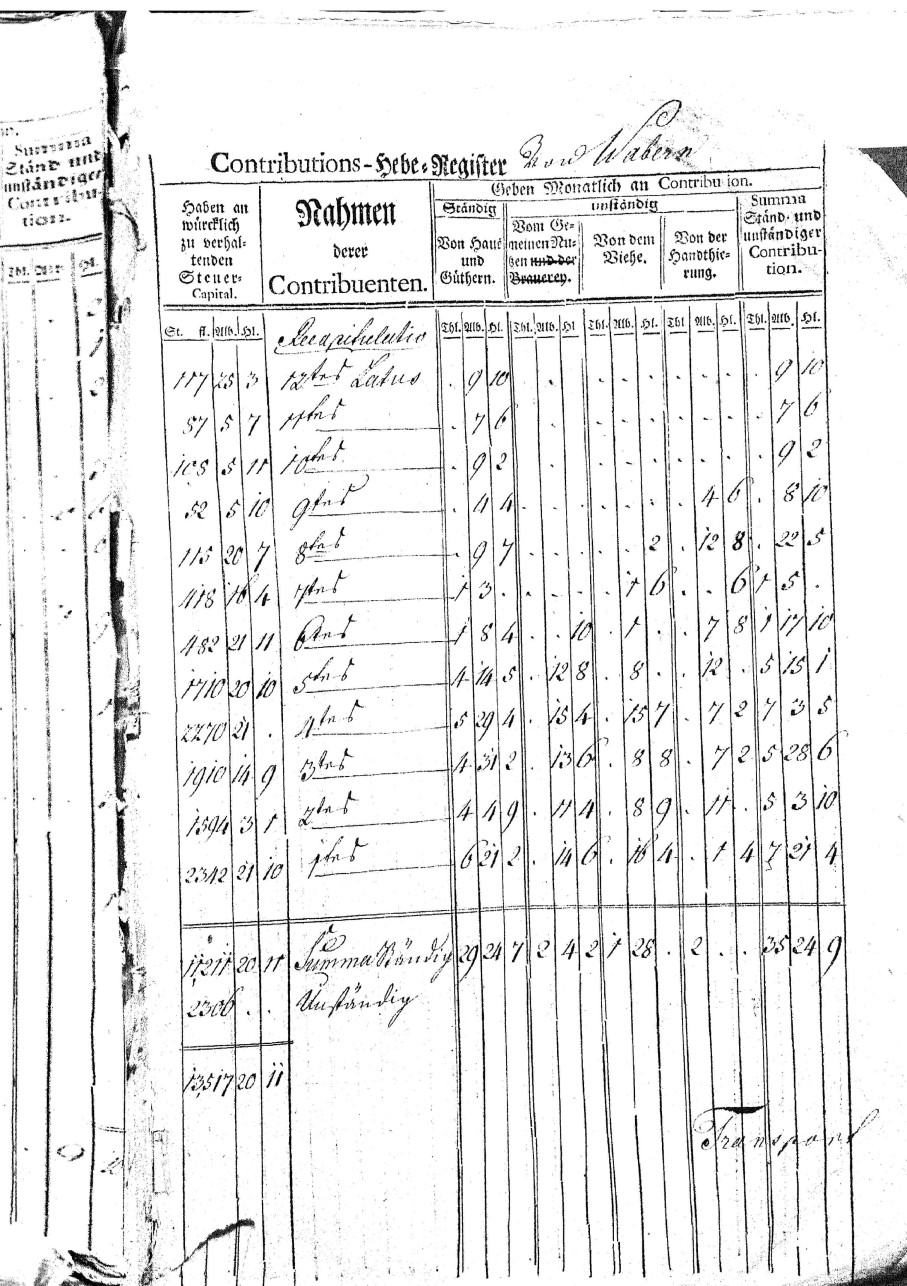 Summa
Ständ und
unständiger
Contribu
tion.
Hl.
Contributions-Hebe-Register Von Wabern
Haben an
würcklich
zu verhal-
tenden
Steuer-
Capital.
Nahmen
derer
Contribuenten.
Geben Monatlich an Contribution.
Ständig
Von Hauß
und
Güthern.
unständig
Vom Ge-
meinen Nu-
tzen und der
Brauerey.
Von dem
Viehe.
Von der
Handthie-
rung.
Summa
Ständ- und
unständiger
Contribu-
tion.
St. fl. Alb. Hl. Recapitulatio Thl. Alb. Hl. Thl. Alb. Hl Thl. Alb. Hl. Thl Alb. Hl. Thl. Alb. Hl.
117 25 3 12tes Latus . 9 10 . . . . . . . . . . 9 10
87 5 7 11tes . 7 6 . . . . . . . . . . 7 6
108 5 11 10tes . 9 2 . . . . . . . . . . 9 2
52 5 10 9tes . 4 4 . . . . . . . 4 6 . 8 10
115 20 7 8tes . 9 7 . . . . . 2 . 12 8 . 22 5
418 16 4 7tes 1 3 . . . . . 1 6 . . 6 1 5 .
482 21 11 6tes 1 8 4 . . 10 . 1 . . 7 8 1 17 10
1710 20 10 5tes 4 14 5 . 12 8 . 8 . . 12 . 5 15 1
2270 21 . 4tes 5 29 4 . 15 4 . 15 7 . 7 2 7 3 5
1910 14 9 3tes 4 31 2 . 13 6 . 8 8 . 7 2 5 28 6
1594 3 1 2tes 4 4 9 . 11 4 . 8 9 . 11 . 5 3 10
2342 21 10 1tes 6 21 2 . 14 6 . 16 4 . 1 4 7 21 4
11211 20 11 Summa Ständig 29 24 7 2 4 2 1 28 . 2 . . 35 24 9
2306 . . Unständig
13517 20 11
Transport